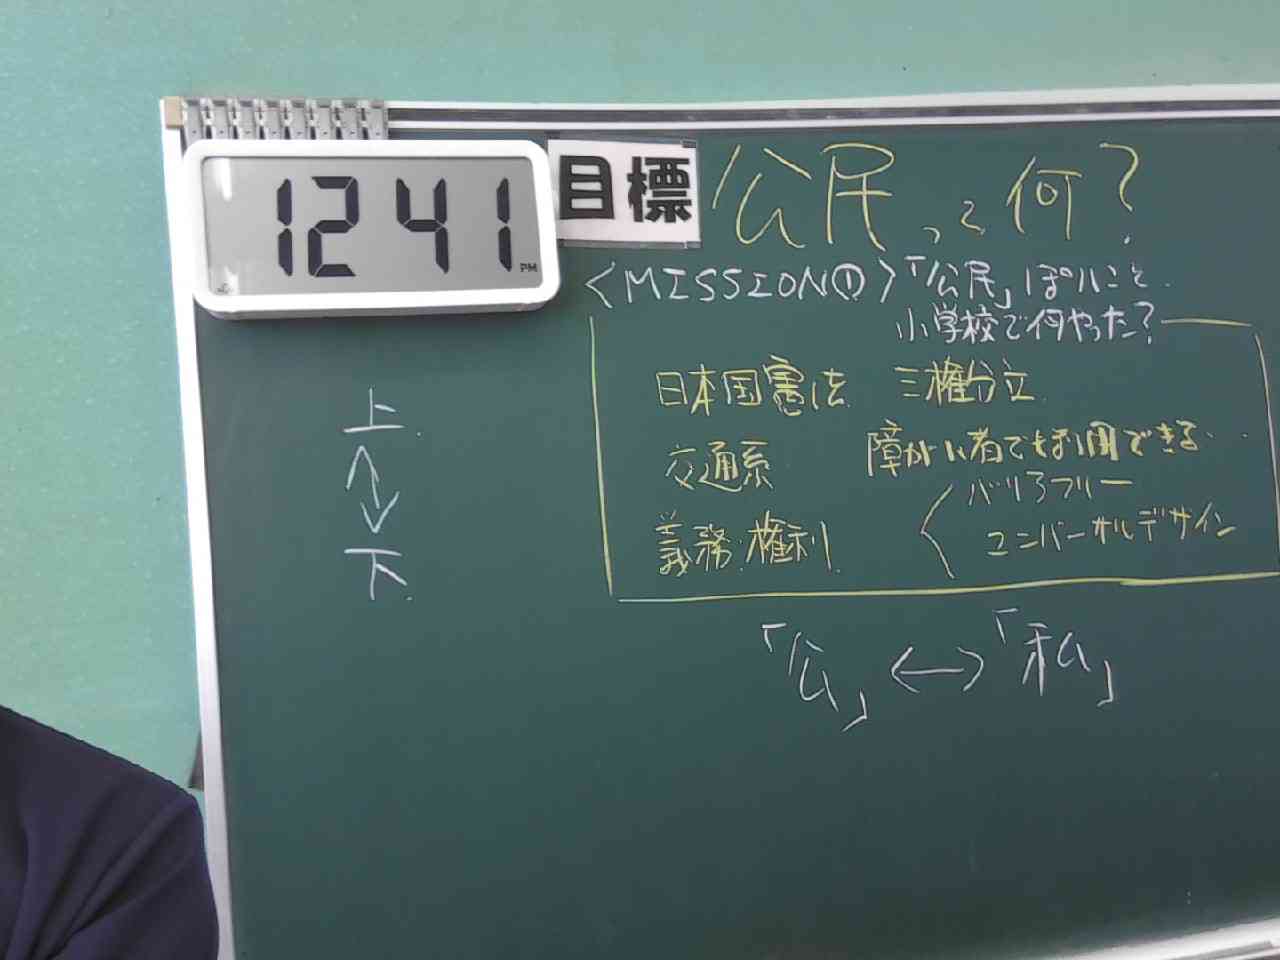 12 41
PM
目標
公民って何?
〈MISSION①〉「公民」ぽいこと
小学校で何やった?
日本国憲法 三権分立
交通系 障がい者でも利用できる‥
義務・権利 バリアフリー
ユニバーサルデザイン
上
↕
下
「公」⟷「私」